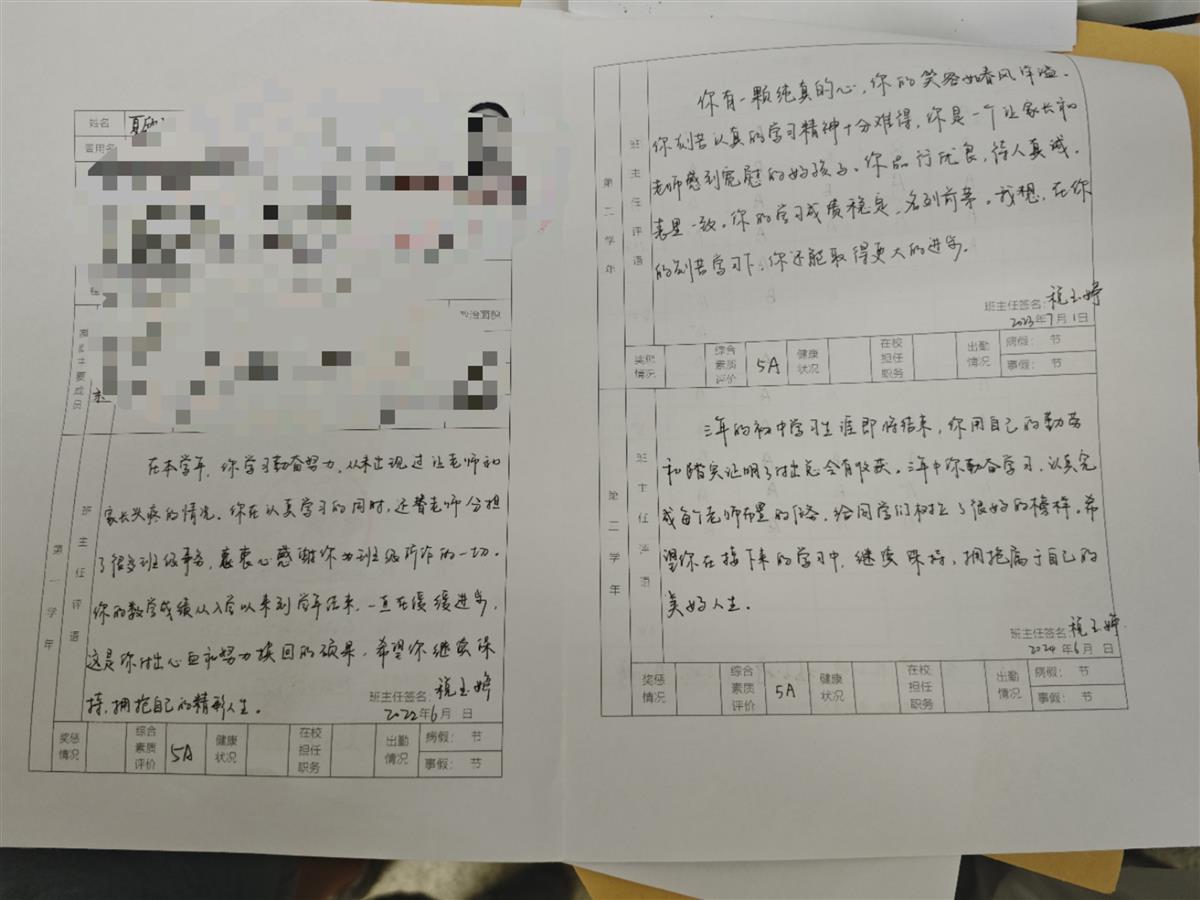 姓名
曾用名
政治面貌
家庭主要成员
第一学年
班主任评语
在本学年，你学习勤奋努力，从未出现过让老师和
家长头疼的情况。你在认真学习的同时，还替老师分担
了很多班级事务，衷心感谢你为班级所作的一切。
你的数学成绩从入学以来到学年结束，一直在缓缓进步，
这是你付出心血和努力换回的硕果，希望你继续保
持，拥抱自己的精彩人生。
班主任签名：
2022年6月 日
奖惩情况
综合素质评价 5A
健康状况
在校担任职务
出勤情况
病假： 节
事假： 节
第二学年
班主任评语
你有一颗纯真的心，你的笑容如春风洋溢。
你刻苦认真的学习精神十分难得，你是一个让家长和
老师感到宽慰的好孩子。你品行优良，待人真诚，
表里一致。你的学习成绩稳定，名列前茅。我想，在你
的刻苦学习下，你还能取得更大的进步。
班主任签名：
2023年7月1日
奖惩情况
综合素质评价 5A
健康状况
在校担任职务
出勤情况
病假： 节
事假： 节
第二学年
班主任评语
三年的初中学习生涯即将结束，你用自己的勤劳
和踏实证明了付出总会有收获。三年中你勤奋学习，认真完
成每个老师布置的任务，给同学们树立了很好的榜样。希
望你在接下来的学习中，继续保持，拥抱属于自己的
美好人生。
班主任签名：
2024年6月 日
奖惩情况
综合素质评价 5A
健康状况
在校担任职务
出勤情况
病假： 节
事假： 节